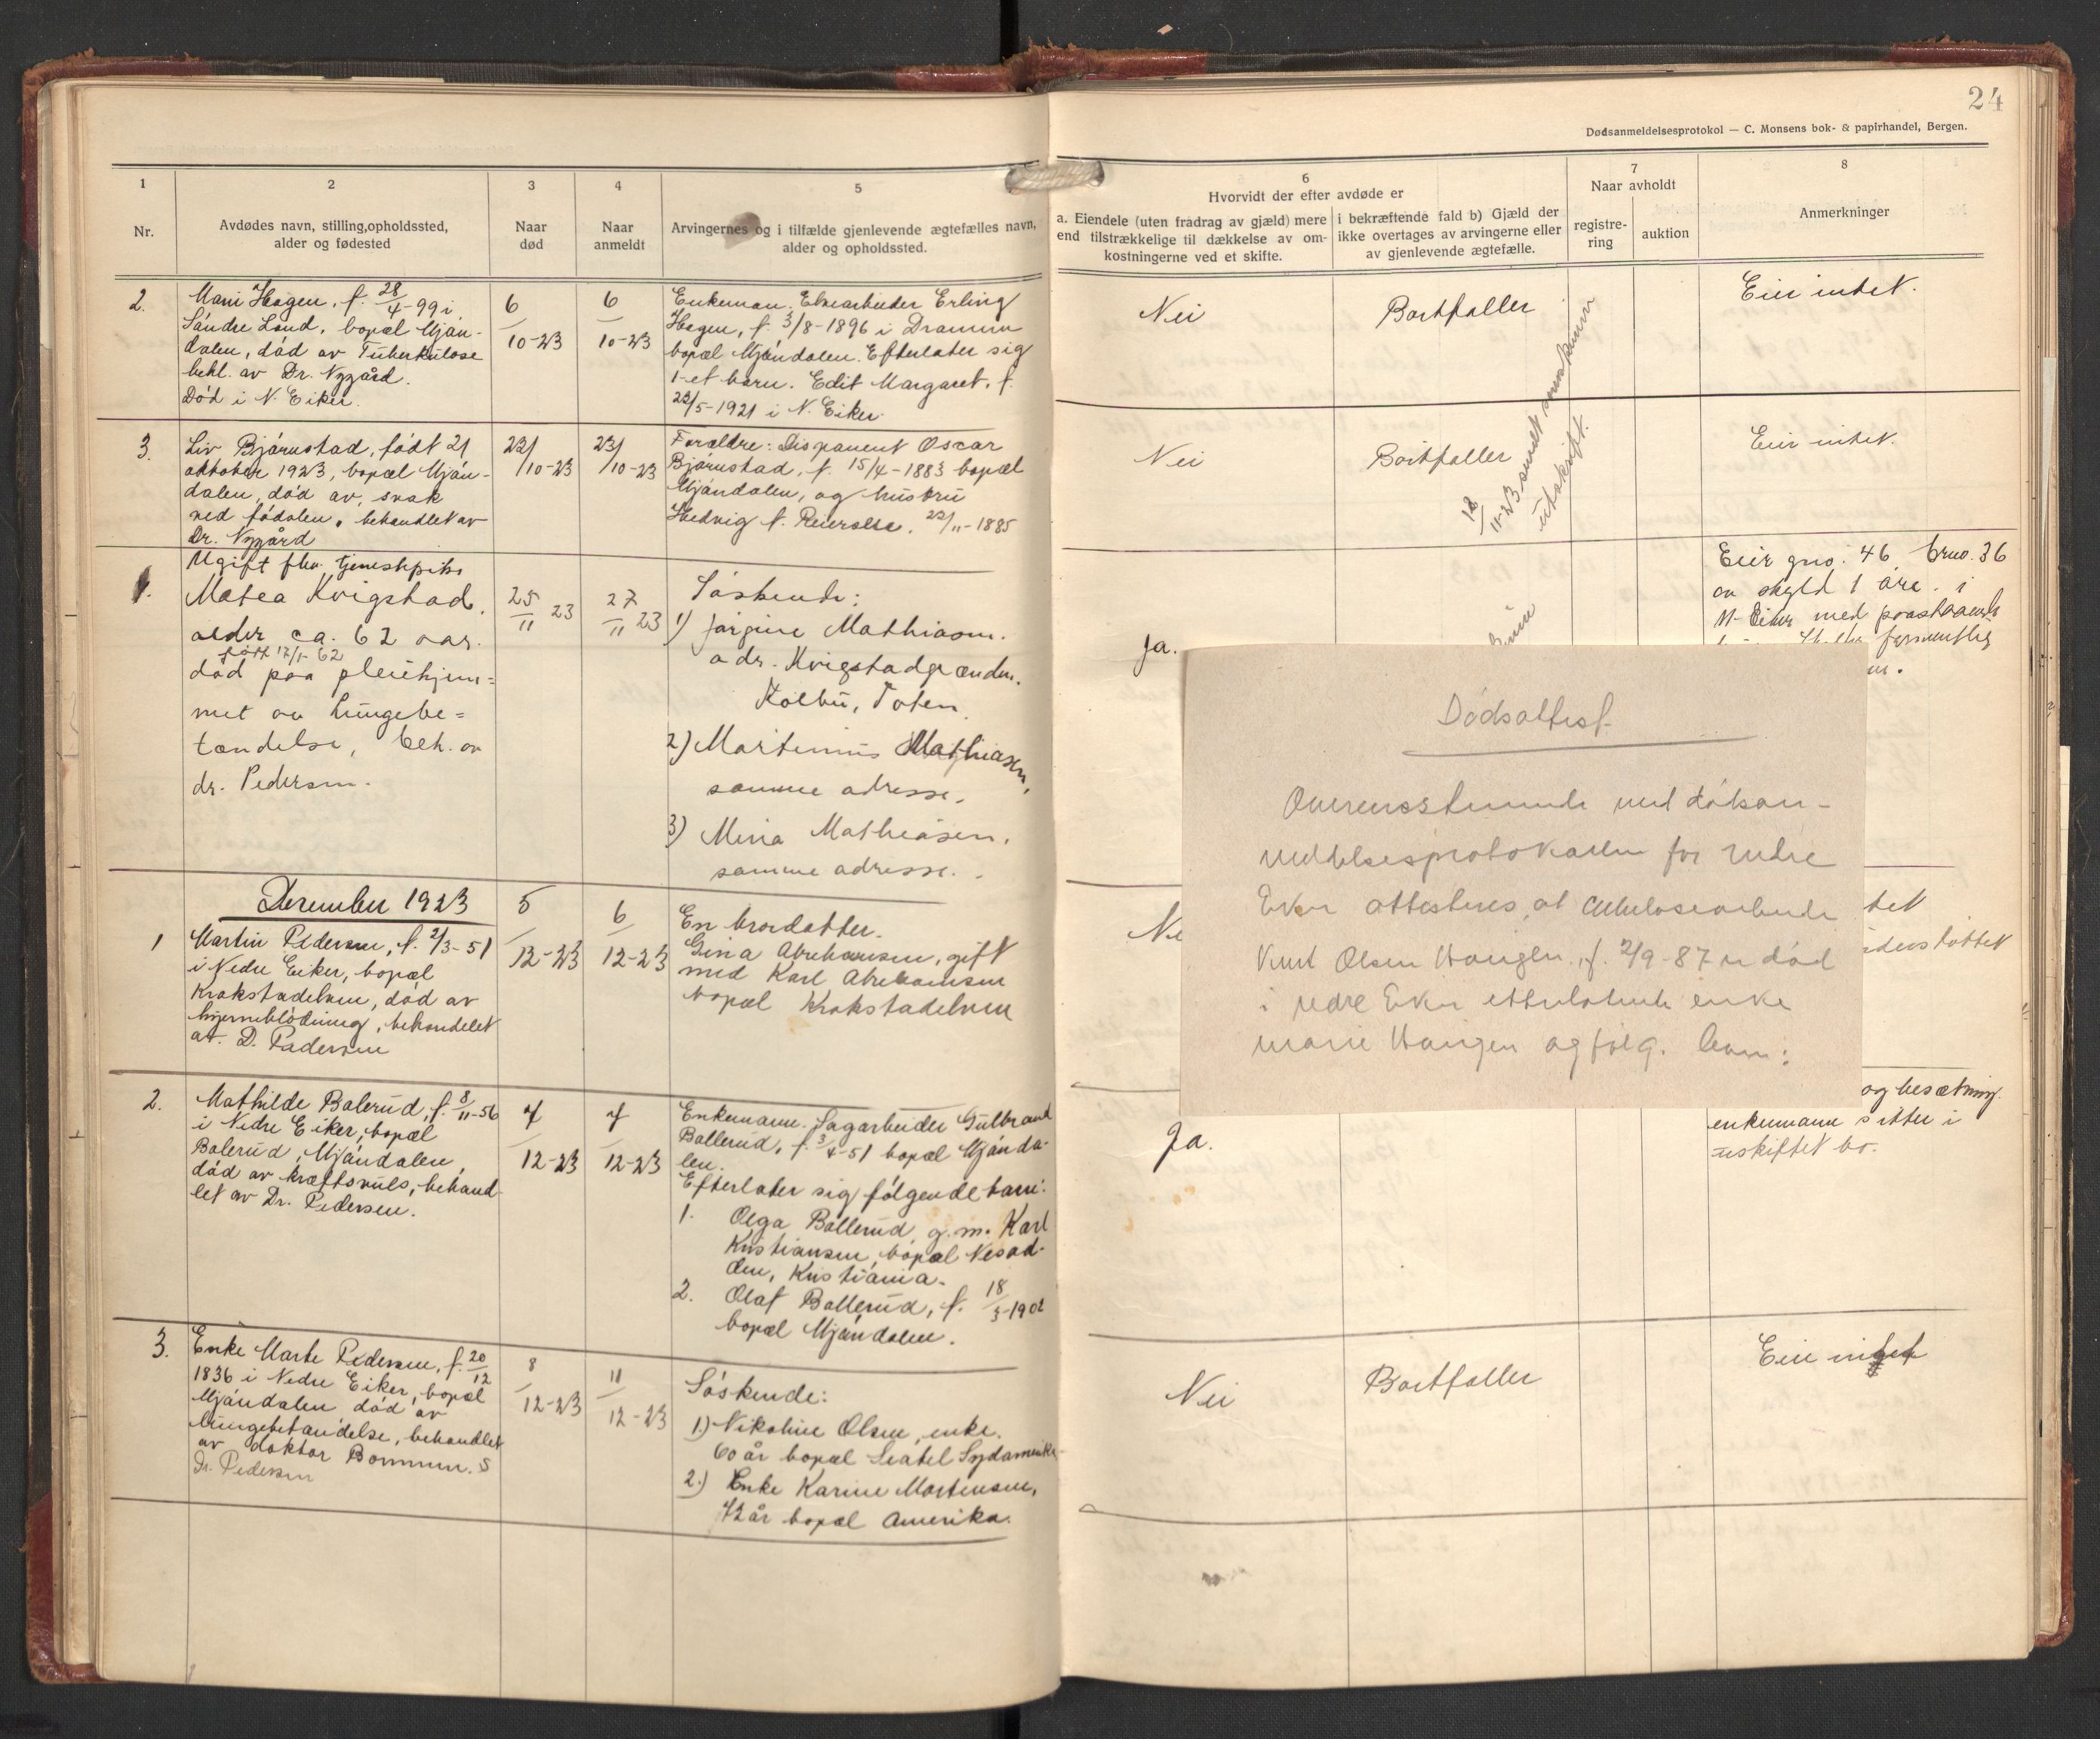 24
Dødsanmeldelsesprotokol — C. Monsens bok- & papirhandel, Bergen.
1
Nr.
2
Avdødes navn, stilling, opholdssted,
alder og fødested
3
Naar
død
4
Naar
anmeldt
5
Arvingernes og i tilfælde gjenlevende ægtefælles navn,
alder og opholdssted.
6
Hvorvidt der efter avdøde er
a. Eiendele (uten fradrag av gjæld) mere
end tilstrækkelige til dækkelse av om-
kostningerne ved et skifte.
i bekræftende fald b) Gjæld der
ikke overtages av arvingerne eller
av gjenlevende ægtefælle.
7
Naar avholdt
registre-
ring
auktion
8
Anmerkninger
2.
Mari Hagen, f. 28/4-99 i
Søndre Land, bopæl Mjøn-
dalen, død av Tuberkulose
behl. av Dr. Nygård.
Død i N. Eiker.
6/10-23
6/10-23
Enkeman. Elvearbeider Erling
Hagen, f. 3/8-1896 i Drammen
bopæl Mjøndalen. Efterlater sig
1-et barn. Edit Margaret. f.
23/5-1921 i N. Eiker
Nei
Bortfaller
Eier intet.
3.
Liv Bjørnstad, født 21
oktober 1923, bopæl Mjøn-
dalen, død av, svak
ved fødslen, behandlet av
Dr. Nygård
23/10-23
23/10-23
Forældre: Disponent Oscar
Bjørnstad, f. 15/4-1883 bopæl
Mjøndalen, og hustru
Hedvig f. Reierolse. 22/11-1885
Nei
Bortfaller
18/11-23 sendt
utskrift.
Eier intet.
1.
Ugift fhv. tjenestpike
Matea Kvigstad.
alder ca. 62 aar.
født 17/1-62
død paa pleiehjem=
met av lungebe=
tændelse, beh. av
dr. Pedersen.
25/11 23
27/11 23
Søskende:
1) Jørgine Mathiasen.
adr. Kvigstadgrænden.
Kolbu, Toten.
2) Martinius Mathiasen,
samme adresse.
3) Mina Mathiasen.
samme adresse.
Ja.
Eier gno. 46 brno. 36
av skyld 1 øre. i
N-Eiker med paastaaende
Dødsattest
Overensstemmende med dødsan-
meldelsesprotokollen for nedre
Eker attesteres, at cellulosearbeide
Knut Olsen Haugen, f. 2/9-87 er død
i nedre Eker etterlatende enke
Marie Haugen og følg. barn:
December 1923
1
Martin Pedersen, f. 2/3-51
i Nedre Eiker, bopæl
Krokstadelven, død av
hjerneblødning, behandelet
av. D. Pedersen
5/12-23
6/12-23
En brordatter.
Gina Abrahamsen, gift
med Karl Abrahamsen
bopæl Krokstadelven
Ne
tet
derstøttet
2.
Mathilde Balerud, f. 8/11-56
i Nedre Eiker, bopæl
Balerud, Mjøndalen,
død av kræftsvuls, behand-
let av Dr. Pedersen.
7/12-23
7/12-23
Enkemann. Sagarbeider Gulbrand
Ballerud, f. 3/4-51 bopæl Mjønda-
len.
Efterlater sig følgende barn:
1. Olga Ballerud, g. m. Karl
Kristiansen, bopæl Nesod-
den, Kristiania.
2. Olaf Ballerud, f. 18/3-1902
bopæl Mjøndalen.
Ja.
og besætning.
enkemann sitter i
uskiftet bo.
3.
Enke Marte Pedersen, f. 20/12
1836 i Nedre Eiker, bopæl
Mjøndalen død av
lungebetændelse, behandlet
av doktor
Dr. Pedersen
8/12-23
11/12-23
Søskende:
1.) Nikoline Olsen, enke.
60 år bopæl Seatel Sydamerika
2.) Enke Karine Mortensen,
72 år bopæl Amerika.
Nei
Bortfaller
Eier intet